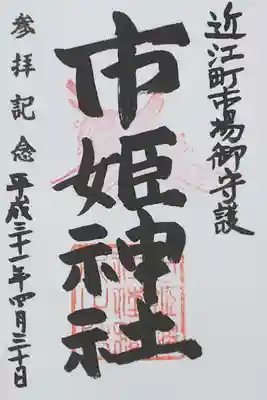 近江町市場御守護
市姫神社
参拝記念 平成三十一年四月三十日